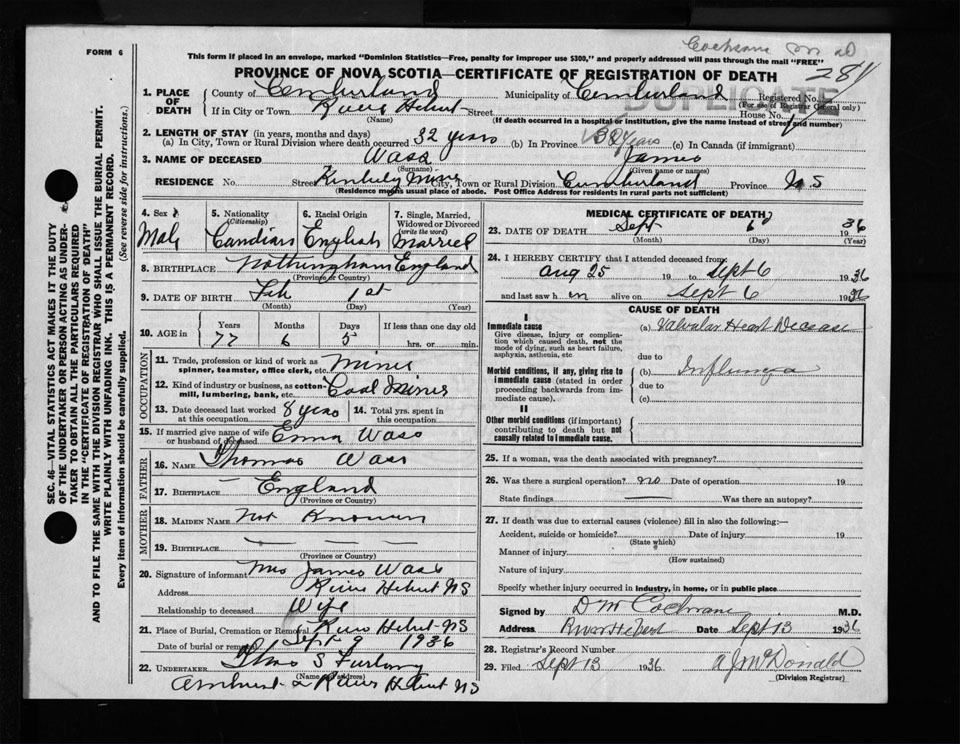 Cochrane
FORM 6
This form if placed in an envelope, marked "Dominion Statistics—Free, penalty for improper use $300," and properly addressed will pass through the mail "FREE"
281
PROVINCE OF NOVA SCOTIA—CERTIFICATE OF REGISTRATION OF DEATH
DUPLICATE
1. PLACE OF DEATH
County of Cumberland Municipality of Cumberland Registered No.
(For use of Registrar General only)
If in City or Town River Hebert Street House No.
(Name) (If death occurred in a hospital or institution, give the name instead of street and number)
2. LENGTH OF STAY (in years, months and days)
(a) In City, Town or Rural Division where death occurred 32 years (b) In Province 32 years (c) In Canada (if immigrant)
3. NAME OF DECEASED Wass James
(Surname) (Given name or names)
RESIDENCE No. Street Kimberly Mine City, Town or Rural Division Cumberland Province N S
(Residence means usual place of abode. Post Office Address for residents in rural parts not sufficient)
4. Sex Male
5. Nationality (Citizenship) Candian
6. Racial Origin English
7. Single, Married, Widowed or Divorced (write the word) Married
8. BIRTHPLACE Nothingham England
(Province or Country)
9. DATE OF BIRTH Feb 1st
(Month) (Day) (Year)
10. AGE in Years Months Days If less than one day old
77 6 5 hrs. or min.
OCCUPATION
11. Trade, profession or kind of work as spinner, teamster, office clerk, etc. Miner
12. Kind of industry or business, as cotton-mill, lumbering, bank, etc. Coal Mines
13. Date deceased last worked at this occupation 8 years
14. Total yrs. spent in this occupation
15. If married give name of wife or husband of deceased Emma Wass
FATHER
16. NAME Thomas Wass
17. BIRTHPLACE England
(Province or Country)
MOTHER
18. MAIDEN NAME Not Known
19. BIRTHPLACE
(Province or Country)
20. Signature of informant Mrs James Wass
Address River Hebert NS
Relationship to deceased Wife
21. Place of Burial, Cremation or Removal River Hebert NS
Date of burial or removal Sept 9 1936
22. UNDERTAKER Thos S Furlong
(Name and address)
Amherst & River Hebert NS
MEDICAL CERTIFICATE OF DEATH
23. DATE OF DEATH Sept 6 1936
(Month) (Day) (Year)
24. I HEREBY CERTIFY that I attended deceased from:
Aug 25 19 to Sept 6 1936
and last saw h im alive on Sept 6 1936
CAUSE OF DEATH
I
Immediate cause
Give disease, injury or complication which caused death, not the mode of dying, such as heart failure, asphyxia, asthenia, etc
(a) Valvular Heart Disease
due to
Morbid conditions, if any, giving rise to immediate cause (stated in order proceeding backwards from immediate cause).
(b) Influenza
due to
(c)
II
Other morbid conditions (if important) contributing to death but not causally related to immediate cause.
25. If a woman, was the death associated with pregnancy?
26. Was there a surgical operation? no Date of operation 19
State findings Was there an autopsy?
27. If death was due to external causes (violence) fill in also the following:—
Accident, suicide or homicide? Date of injury 19
(State which)
Manner of injury
(How sustained)
Nature of injury
Specify whether injury occurred in industry, in home, or in public place
Signed by D M Cochrane M.D.
Address River Hebert Date Sept 13 1936
28. Registrar's Record Number
29. Filed Sept 13 1936 A J McDonald
(Division Registrar)
SEC. 46—VITAL STATISTICS ACT MAKES IT THE DUTY
OF THE UNDERTAKER OR PERSON ACTING AS UNDER-
TAKER TO OBTAIN ALL THE PARTICULARS REQUIRED
IN THE "CERTIFICATE OF REGISTRATION OF DEATH"
AND TO FILE THE SAME WITH THE DIVISION REGISTRAR WHO SHALL ISSUE THE BURIAL PERMIT.
WRITE PLAINLY WITH UNFADING INK. THIS IS A PERMANENT RECORD.
Every item of information should be carefully supplied. (See reverse side for instructions.)